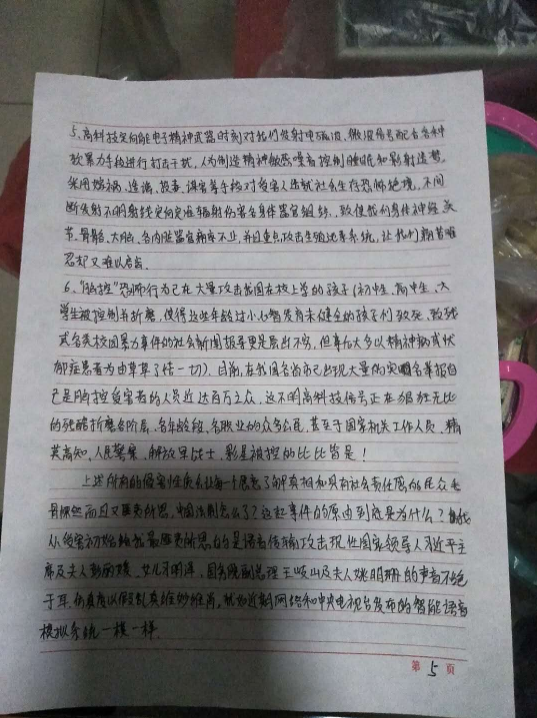 5、高科技定向能电子精神武器时刻对我们发射电磁波、微波信号配合各种
软暴力手段进行打击干扰,人为制造精神敏感噪音控制睡眠和影射造势,
采用嫁祸、连诵、投毒、谋害等手段对受害人造就社会生存恐怖绝境,不间
断发射不明射线定向定准辐射伤害各身体器官组织,致使我们身体神经关
节、骨骼、大脑、各内脏器官病痛不止,并且重点攻击生殖泌尿系统,让我们痛苦难
忍却又难以启齿。
6、“脑控”恐怖行为已在大量攻击我国在校上学的孩子(初中生、高中生、大
学生被控制并折磨,使得这些年龄过小心智发育未健全的孩子们致死、致残
或各类校园暴力事件的社会新闻报导更是层出不穷,但事后大多以精神病或忧
郁症患者为由草草了结一切)。目前,在我国各省市已出现大量的实名举报自
己是脑控受害者的人员近达百万之众,这不明高科技信号正在猖狂无比
的残酷折磨各阶层、各年龄段、各职业的众多公民,甚至于国家机关工作人员、精
英高知、人民警察、解放军战士、影星被控的比比皆是!
上述所有的侵害性质会让每一个愿意了解真相和具有社会责任感的民众毛
骨悚然而且又匪夷所思,中国法制怎么了?这起事件的原由到底是为什么?
从受害初始到就最匪夷所思的是语音传输攻击现任国家领导人习近平主
席及夫人彭丽媛、女儿习明泽、国务院副总理王岐山及夫人姚明珊的声音不绝
于耳,仿真度以假乱真维妙维肖,就如近期网络和中央电视台发布的智能语音
模拟系统一模一样。
第 5 页